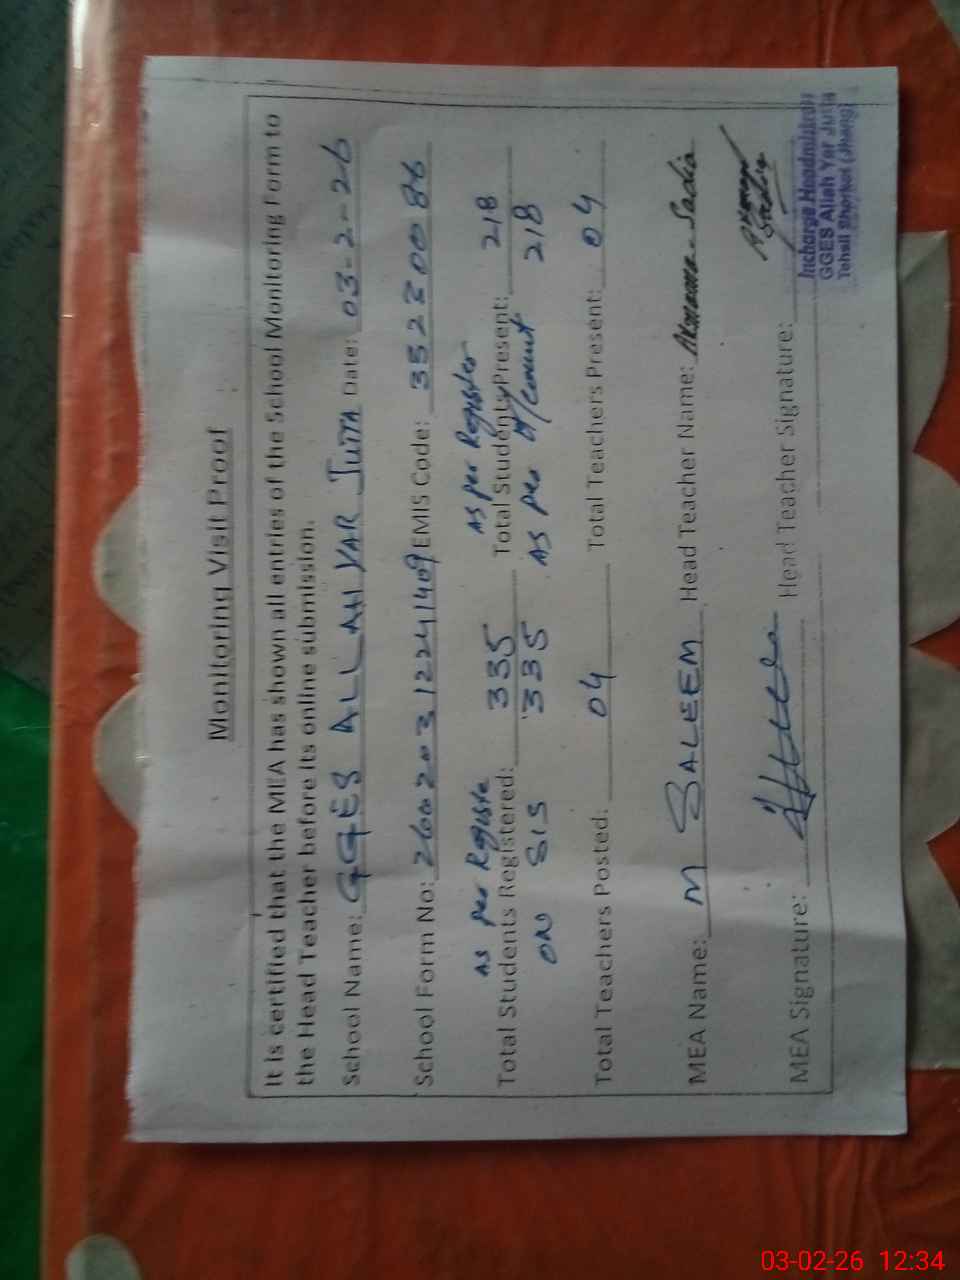 Monitoring Visit Proof
It is certified that the MEA has shown all entries of the School Monitoring Form to
the Head Teacher before its online submission.
School Name: GGES ALLAH YAR JUTA Date: 03-2-26
School Form No: 26020312241409 EMIS Code: 35230086
As per Registe As per Register
Total Students Registered: 335 Total Students Present: 218
ON SIS 335 As per H/count 218
Total Teachers Posted: 04 Total Teachers Present: 04
MEA Name: M SALEEM Head Teacher Name: Sadia
MEA Signature: Head Teacher Signature:
Incharge Headmistress
GGES Allah Yar Juta
Tehsil Shorkot (Jhang)
03-02-26 12:34